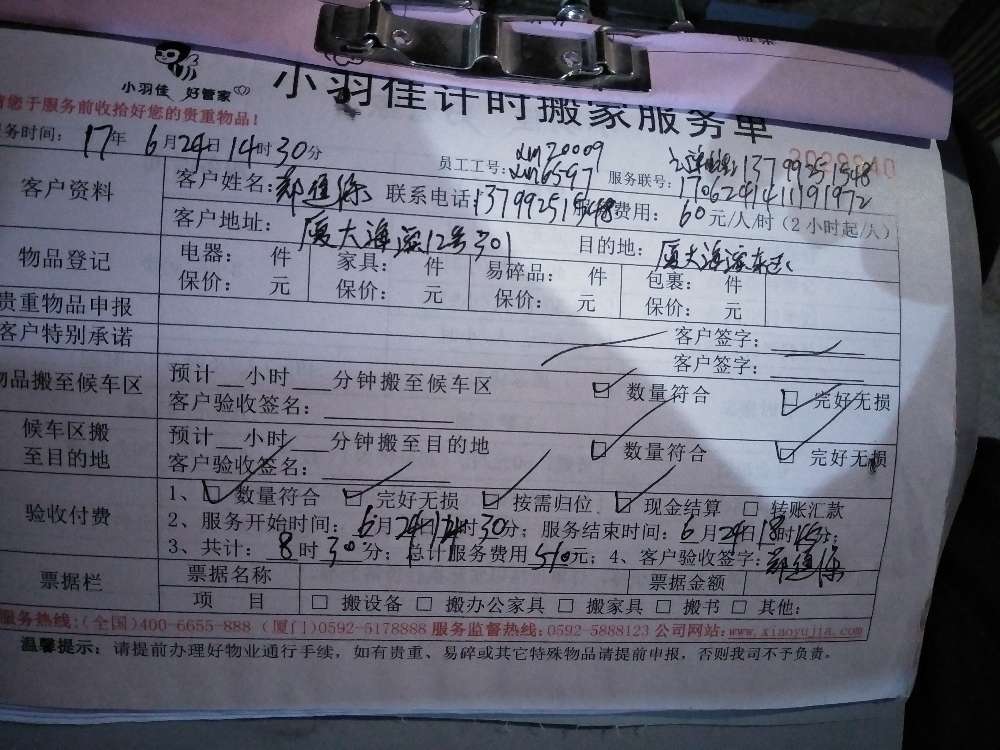 小羽佳 好管家
小羽佳计时搬家服务单
请您于服务前收拾好您的贵重物品！
服务时间： 17年 6月24日14时30分
员工工号： xm20009
xm6597
服务联号： 13799251548
1706241411191972
客户资料
客户姓名： 联系电话：13799251548 费用： 60元/人/时（2小时起/人）
客户地址： 厦大海滨12号301 目的地： 厦大海滨东区
物品登记
电器： 件 家具： 件 易碎品： 件 包裹： 件
保价： 元 保价： 元 保价： 元 保价： 元
贵重物品申报
客户签字：
客户特别承诺
客户签字：
物品搬至候车区
预计__小时___分钟搬至候车区 数量符合 完好无损
客户验收签名：
候车区搬至目的地
预计__小时___分钟搬至目的地 数量符合 完好无损
客户验收签名：
验收付费
1、 数量符合 完好无损 按需归位 现金结算 转账汇款
2、服务开始时间： 6月24日14时30分；服务结束时间：6月24日18时45分；
3、共计： 8时30分；总计服务费用510元；4、客户验收签字：
票据栏
票据名称 票据金额
项 目 □ 搬设备 □ 搬办公家具 □ 搬家具 □ 搬书 □ 其他：
服务热线：(全国)400-6655-888 (厦门)0592-5178888 服务监督热线：0592-5888123 公司网站：www.xiaoyujia.com
温馨提示：请提前办理好物业通行手续，如有贵重、易碎或其它特殊物品请提前申报，否则我司不予负责。